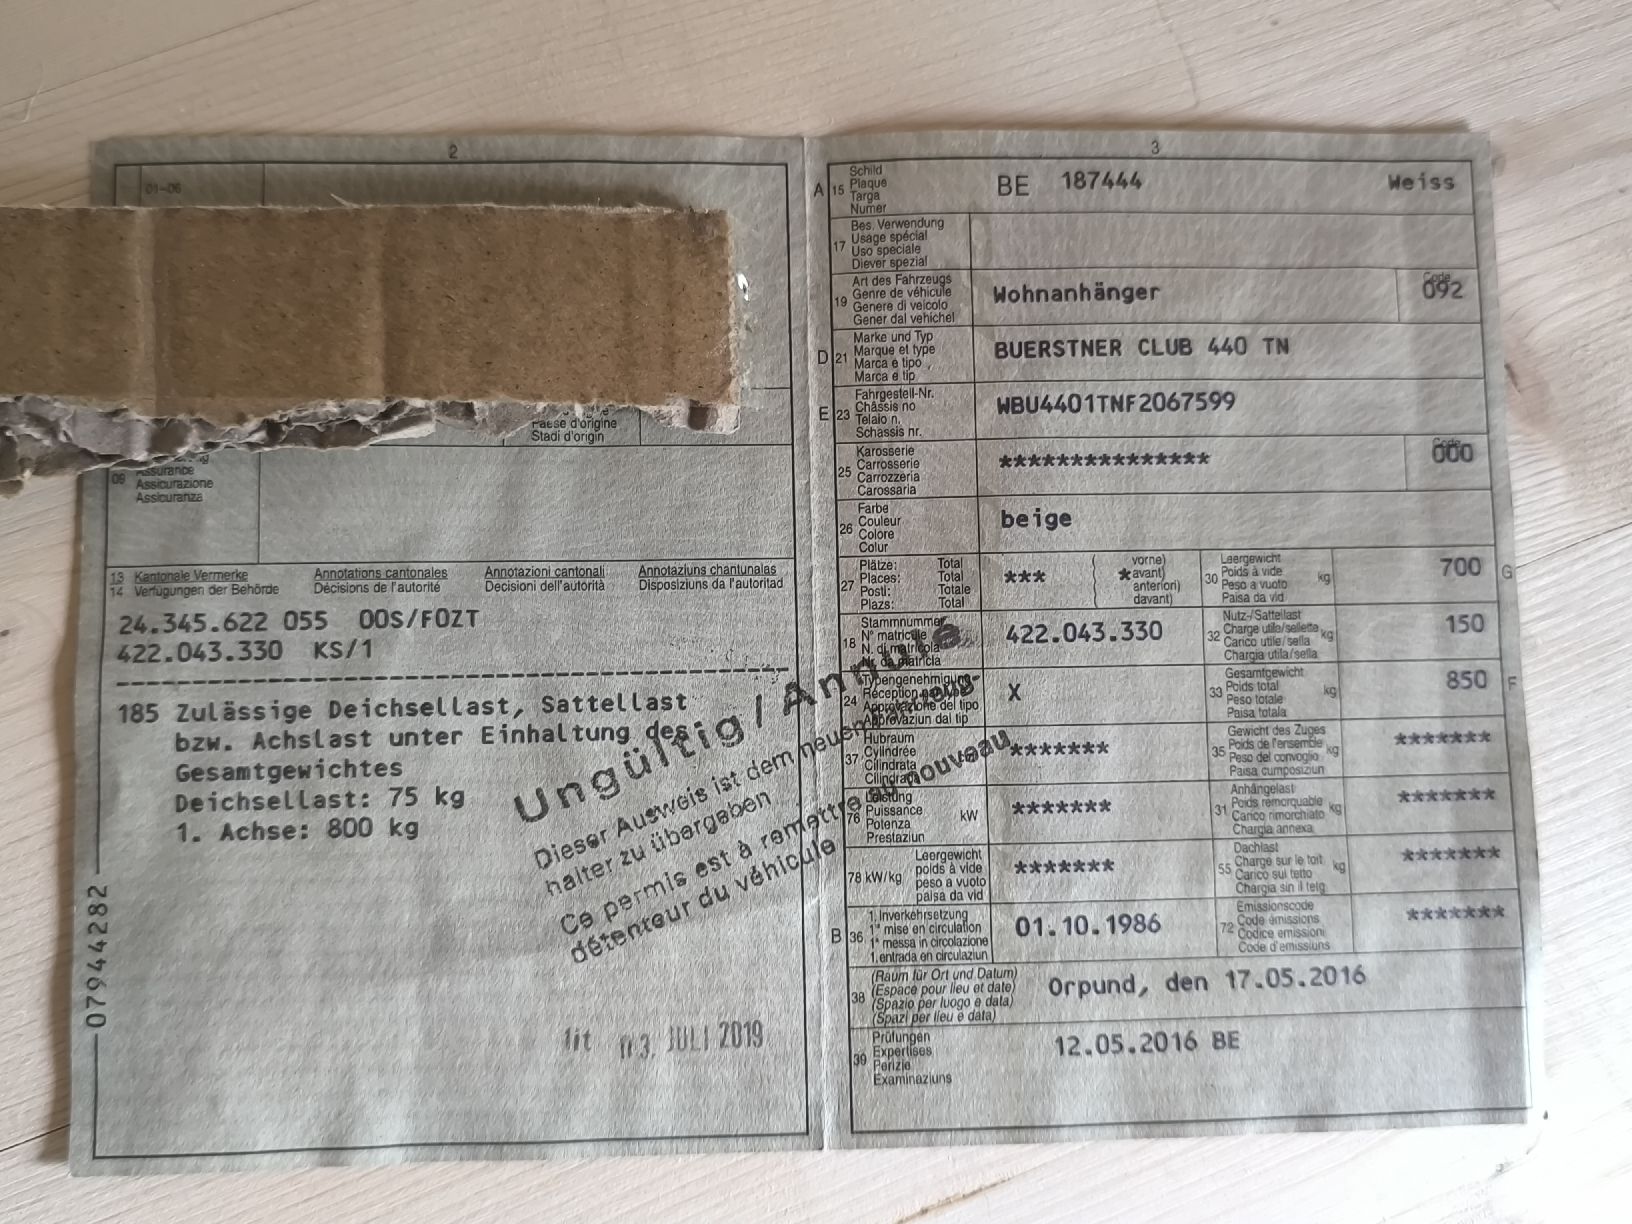 2
01-06
Paese d'origine
Stadi d'origin
09
Assurance
Assicurazione
Assicuranza
13 Kantonale Vermerke Annotations cantonales Annotazioni cantonali Annotaziuns chantunalas
14 Verfügungen der Behörde Décisions de l'autorité Decisioni dell'autorità Disposiziuns da l'autoritad
24.345.622 055 OOS/FOZT
422.043.330 KS/1
185 Zulässige Deichsellast, Sattellast
bzw. Achslast unter Einhaltung des
Gesamtgewichtes
Deichsellast: 75 kg
1. Achse: 800 kg
Ungültig / Annulé
Dieser Ausweis ist dem neuen Fahrzeug-
halter zu übergeben
Ce permis est à remettre au nouveau
détenteur du véhicule
03. JULI 2019
07944282
3
A 15 Schild
Plaque
Targa
Numer
BE 187444 Weiss
17 Bes. Verwendung
Usage spécial
Uso speciale
Diever spezial
19 Art des Fahrzeugs
Genre de véhicule
Genere di veicolo
Gener dal vehichel
Wohnanhänger
Code
092
D 21 Marke und Typ
Marque et type
Marca e tipo
Marca e tip
BUERSTNER CLUB 440 TN
E 23 Fahrgestell-Nr.
Châssis no
Telaio n.
Schassis nr.
WBU4401TNF2067599
25 Karosserie
Carrosserie
Carrozzeria
Carossaria
***************
Code
000
26 Farbe
Couleur
Colore
Colur
beige
27 Plätze: Total
Places: Total
Posti: Totale
Plazs: Total
***
* vorne)
avant)
anteriori)
davant)
30 Leergewicht
Poids à vide
Peso a vuoto
Paisa da vid
kg
700 G
18 Stammnummer
N° matricule
N. di matricola
Nr. da matricla
422.043.330
32 Nutz-/Sattellast
Charge utile/sellette
Carico utile/sella
Chargia utila/sella
kg
150
24 Typengenehmigung
Réception par type
Approvazione del tipo
Approvaziun dal tip
X
33 Gesamtgewicht
Poids total
Peso totale
Paisa totala
kg
850 F
37 Hubraum
Cylindrée
Cilindrata
Cilindrada
*******
35 Gewicht des Zuges
Poids de l'ensemble
Peso del convoglio
Paisa cumposiziun
kg
*******
76 Leistung
Puissance
Potenza
Prestaziun
kW
*******
31 Anhängelast
Poids remorquable
Carico rimorchiato
Chargia annexa
kg
*******
78 kW/kg Leergewicht
poids à vide
peso a vuoto
paisa da vid
*******
55 Dachlast
Charge sur le toit
Carico sul tetto
Chargia sin il tetg
kg
*******
B 36 1. Inverkehrsetzung
1re mise en circulation
1a messa in circolazione
1. entrada en circulaziun
01.10.1986
72 Emissionscode
Code émissions
Codice emissioni
Code d'emissiuns
*******
38 (Raum für Ort und Datum)
(Espace pour lieu et date)
(Spazio per luogo e data)
(Spazi per lieu e data)
Orpund, den 17.05.2016
39 Prüfungen
Expertises
Perizie
Examinaziuns
12.05.2016 BE